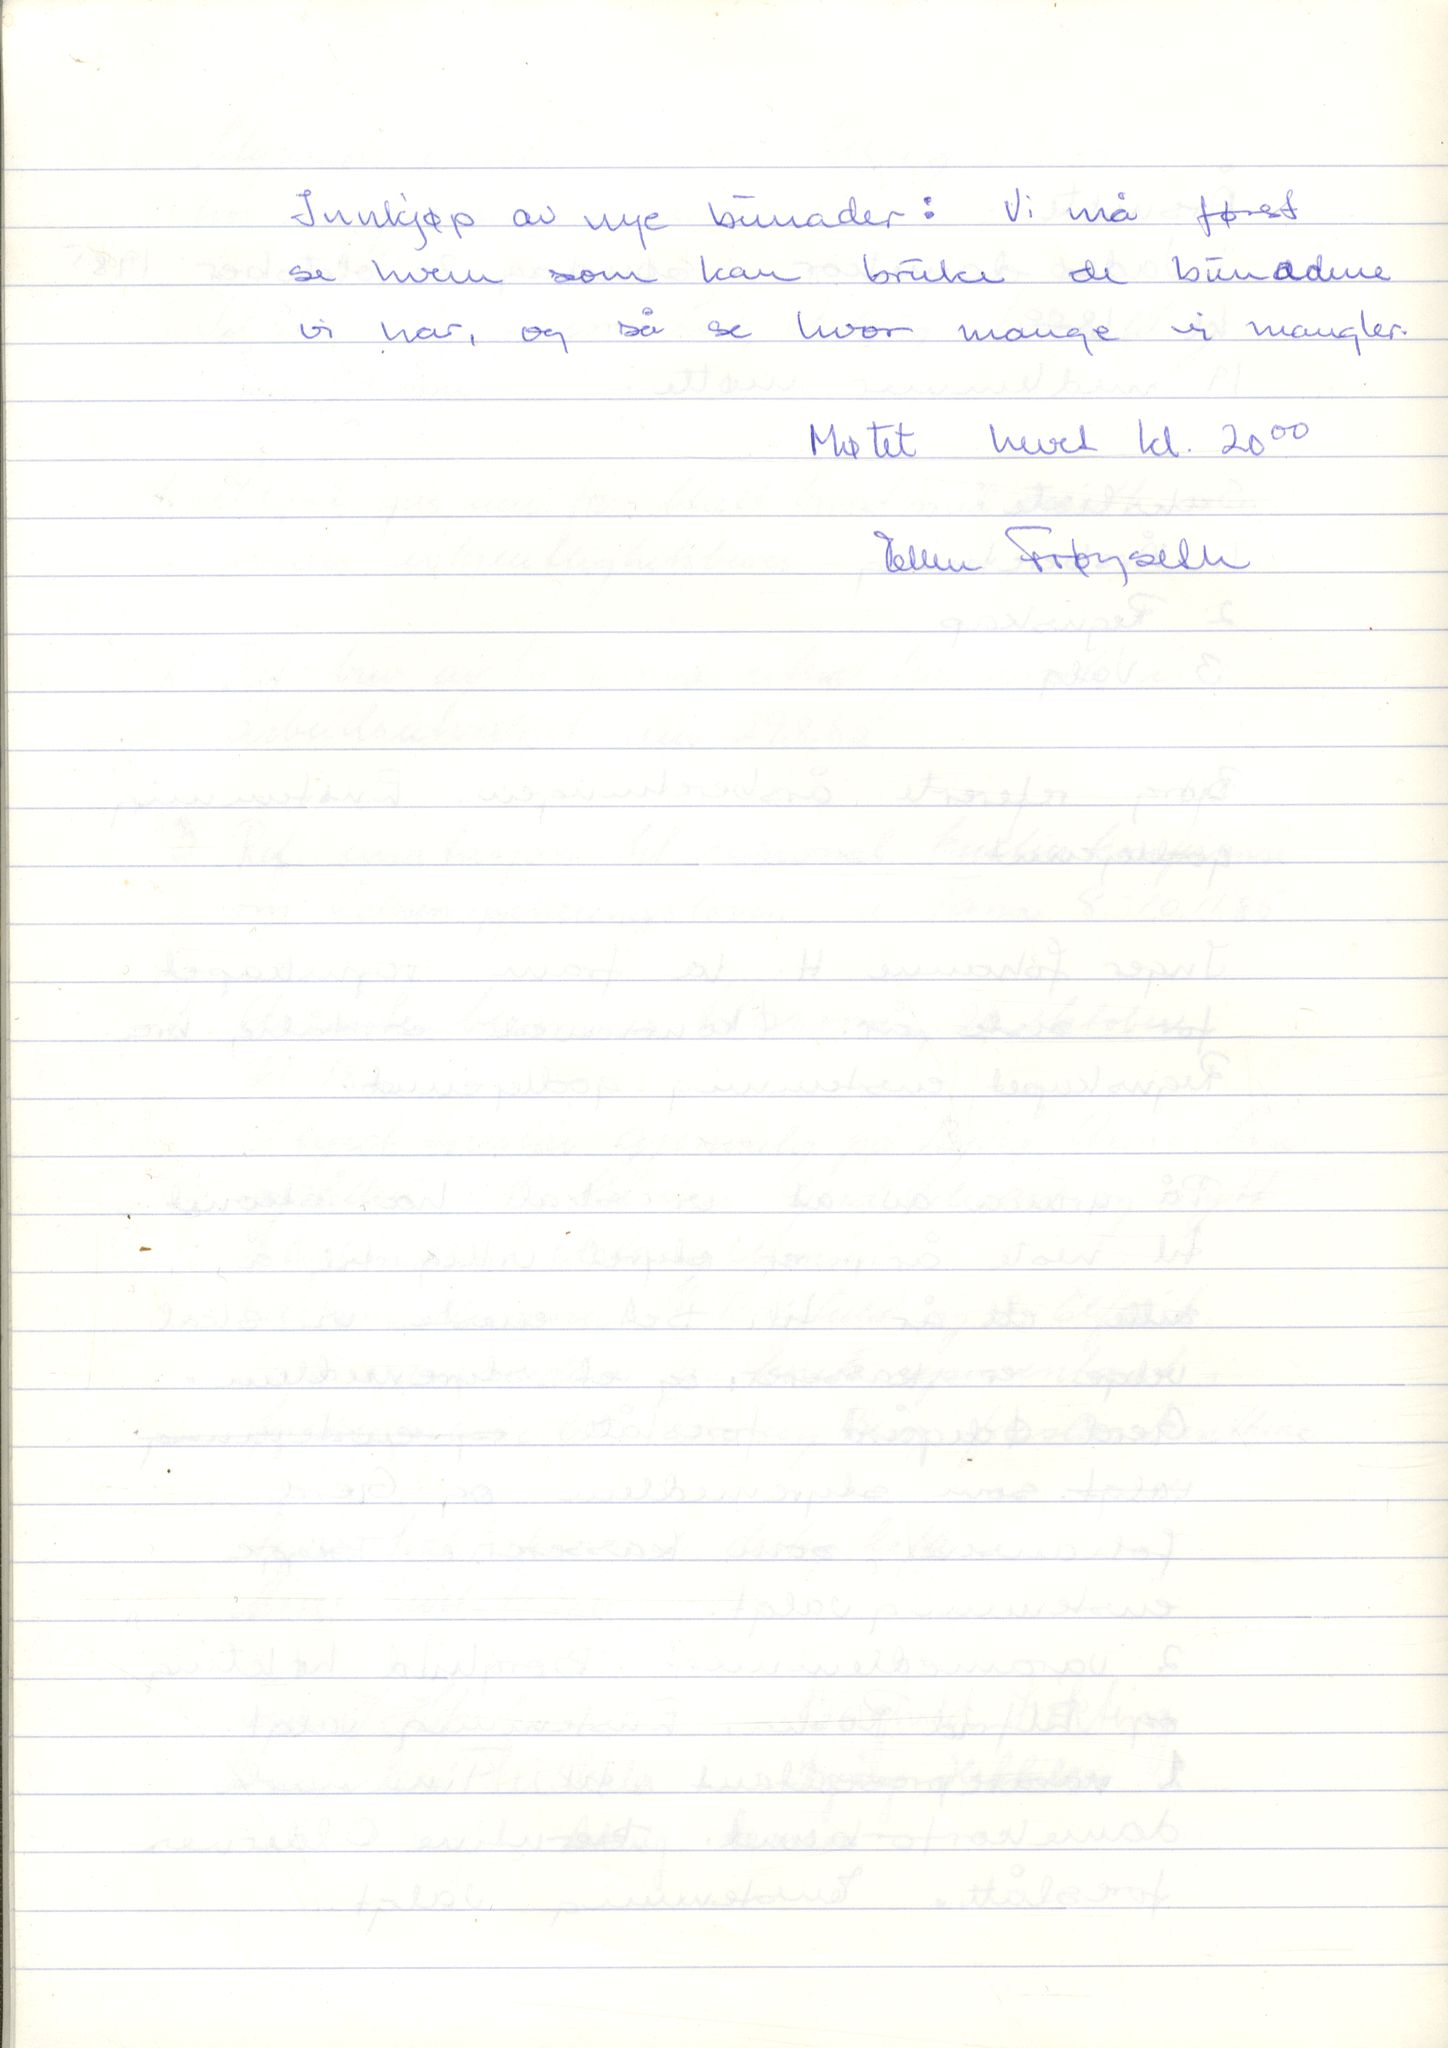 Innkjøp av nye bunader: Vi må først
se hvem som kan bruke de bunadene
vi har, og så se hvor mange vi mangler.
Møtet hevet kl. 20⁰⁰
Ellen Frøyseth